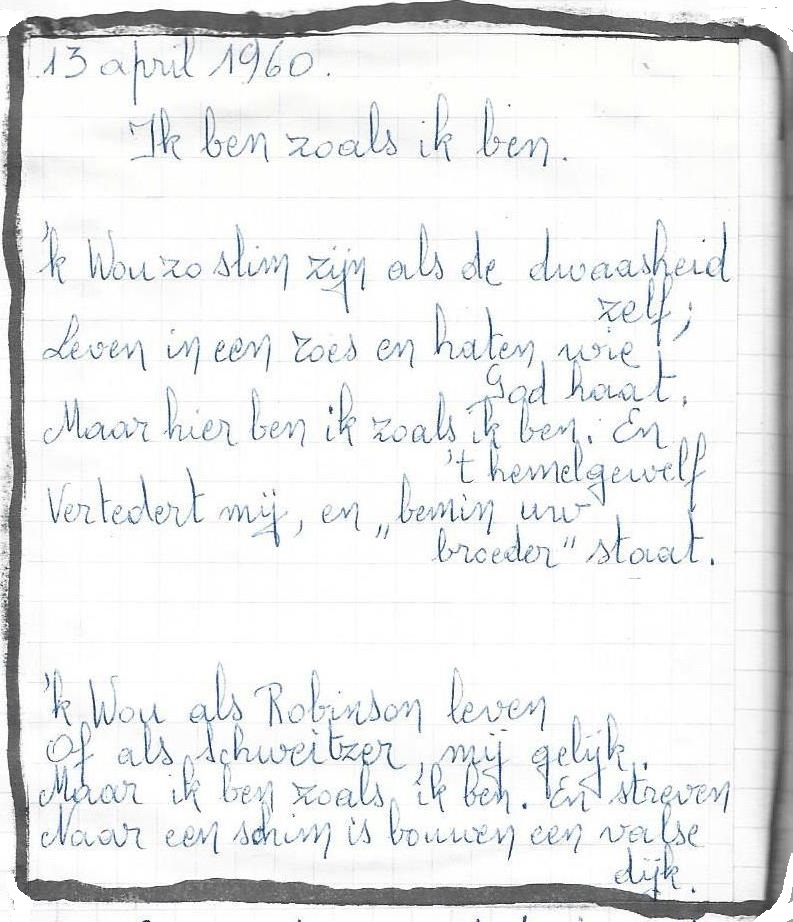 13 april 1960.
Ik ben zoals ik ben.
'k Wou zo slim zijn als de dwaasheid
zelf;
Leven in een roes en haten wie
God haat.
Maar hier ben ik zoals ik ben. En
't hemelgewelf
Vertedert mij, en „bemin uw
broeder" staat.
'k Wou als Robinson leven
Of als Schweitzer, mij gelijk.
Maar ik ben zoals ik ben. En streven
Naar een schim is bouwen een valse
dijk.